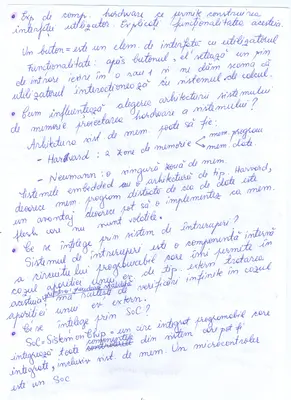 • Exp de comp. hardware ce permite construirea
interfeței utilizator. Explicați funcționalitatea acesteia.
Un buton = este un elem. de interfață cu utilizatorul
Funcționalitate: apăs butonul, el setează un pin
de intrare în 0 sau 1 și ne dăm seama că
utilizatorul interacționează cu sistemul de calcul.
• Cum influențează alegerea arhitecturii sistemului
de memorie proiectarea hardware a sistemului?
Arhitectura sist. de mem poate să fie:
- Harvard: 2 zone de memorie mem program
mem date.
- Neumann: o singură zonă de mem.
Sistemele embedded au o arhitectură de tip Harvard,
deoarece mem program distinctă de cea de date este
un avantaj deoarece pot să o implementez ca mem.
flash care nu sunt volatile.
• Ce se înțelege prin sistem de întreruperi?
Sistemul de întreruperi este o componentă internă
a circuitului programabil care îmi permite în
cazul apariției unui ev. de tip extern tratarea
acestuia fără verificare infinite în cazul
apariției unui ev extern.
• Ce se înțelege prin SoC?
SoC = Sistem on Chip = un circ integrat programabil care
integrează toate componentele din sistem care pot fi
integrate, inclusiv sist. de mem. Un microcontroler
este un SoC